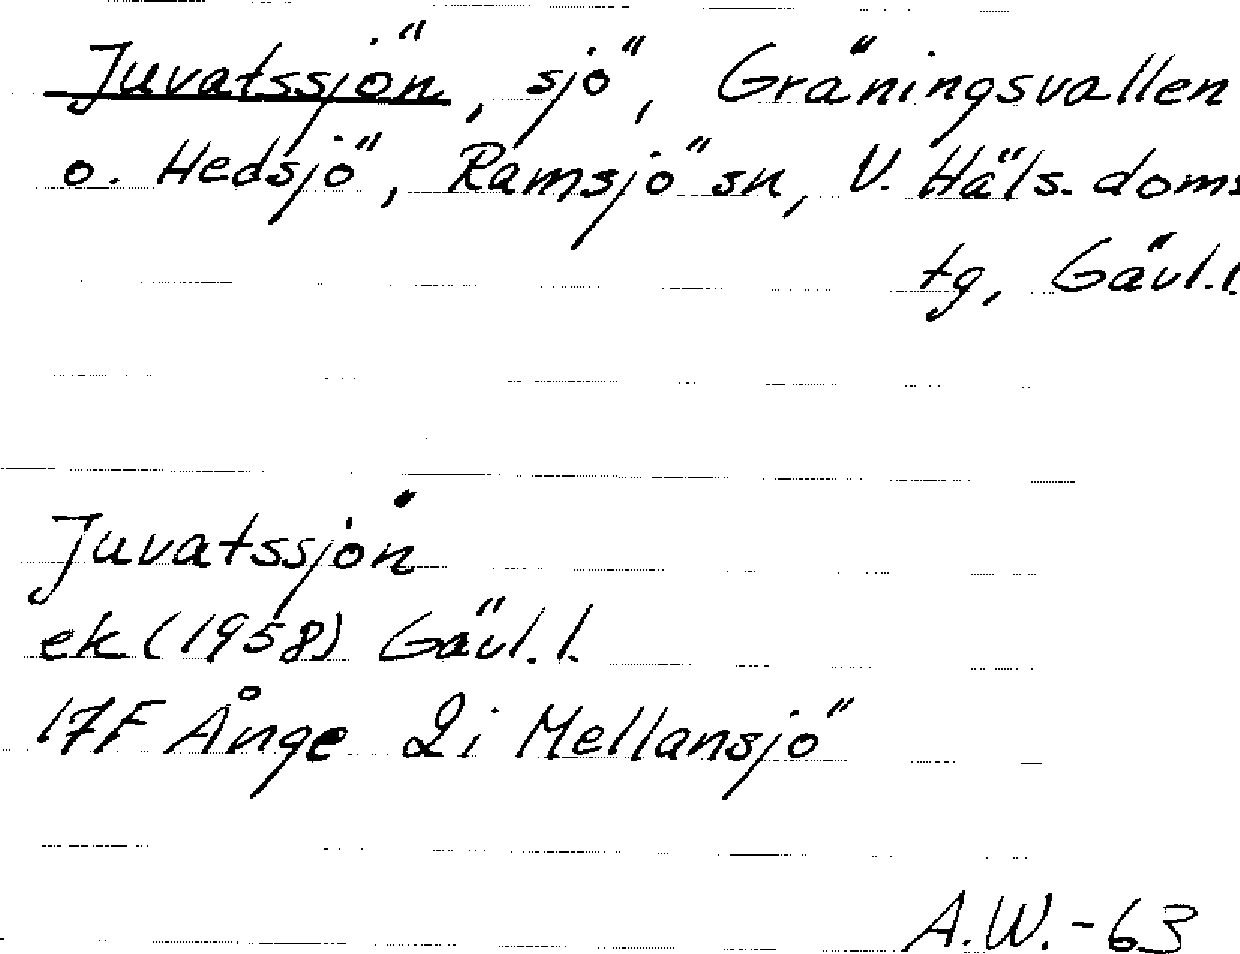 Juvatssjön, sjö, Gräningsvallen
o. Hedsjö, Ramsjö sn, V. Häls. doms
tg, Gävl.l.
Juvatssjön
ek (1958) Gävl.l.
17F Ånge 2i Mellansjö
A.W.-63